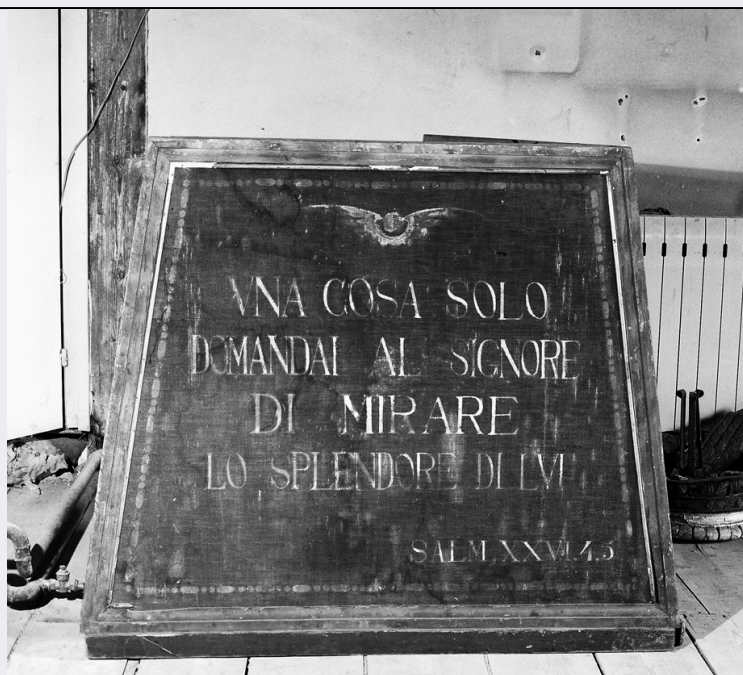 VNA COSA SOLO
DOMANDAI AL SIGNORE
DI MIRARE
LO SPLENDORE DI LVI
SALM. XXVI. 4.5